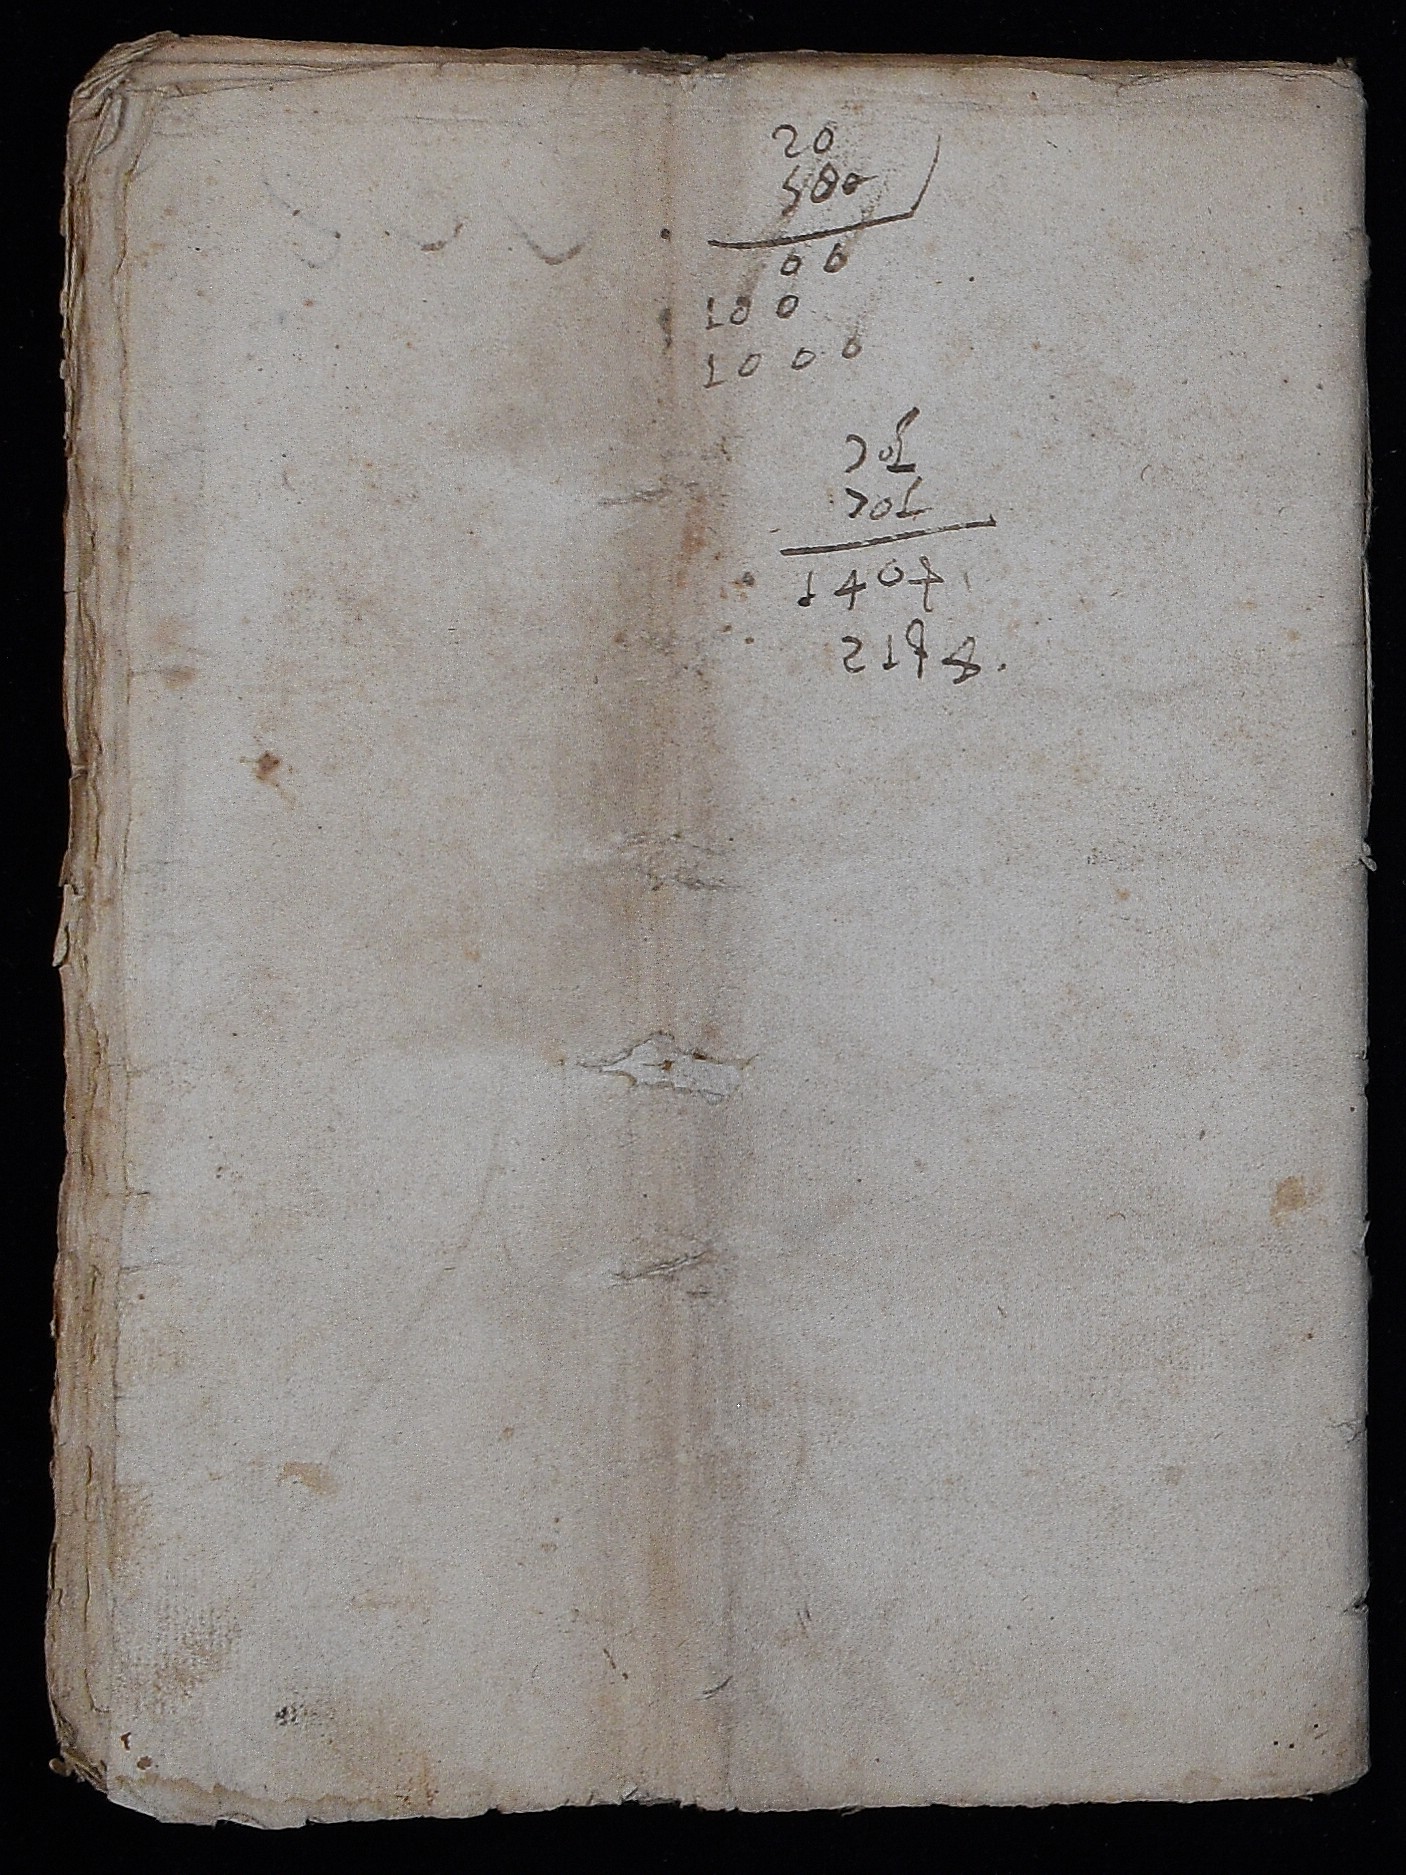 20
500
00
100
1000
701
701
1407
2178.